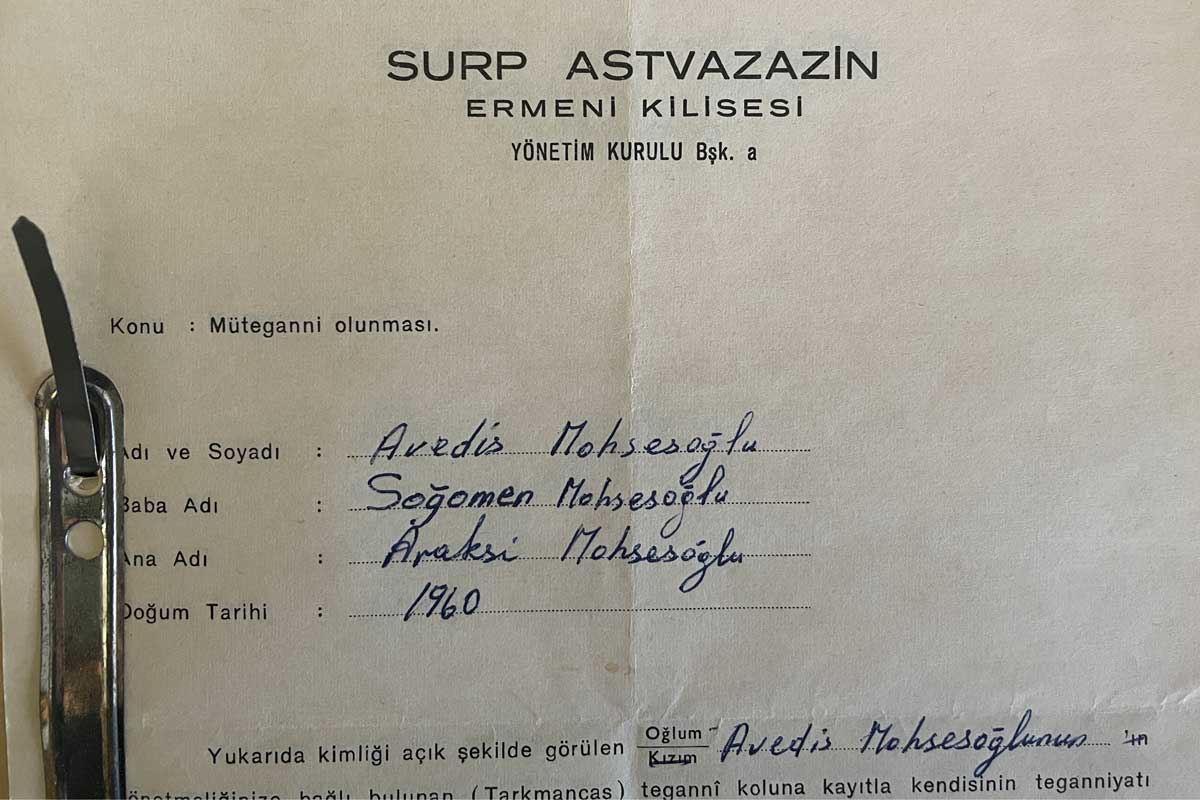 SURP ASTVAZAZİN
ERMENİ KİLİSESİ
YÖNETİM KURULU Bşk. a
Konu : Müteganni olunması.
Adı ve Soyadı : Avedis Mohsesoğlu
Baba Adı : Soğomen Mohsesoğlu
Ana Adı : Araksi Mohsesoğlu
Doğum Tarihi : 1960
Yukarıda kimliği açık şekilde görülen Oğlum Kızım Avedis Mohsesoğlunun 'ın
yönetmeliğinize bağlı bulunan (Tarkmanças) tegannî koluna kayıtla kendisinin teganniyatı